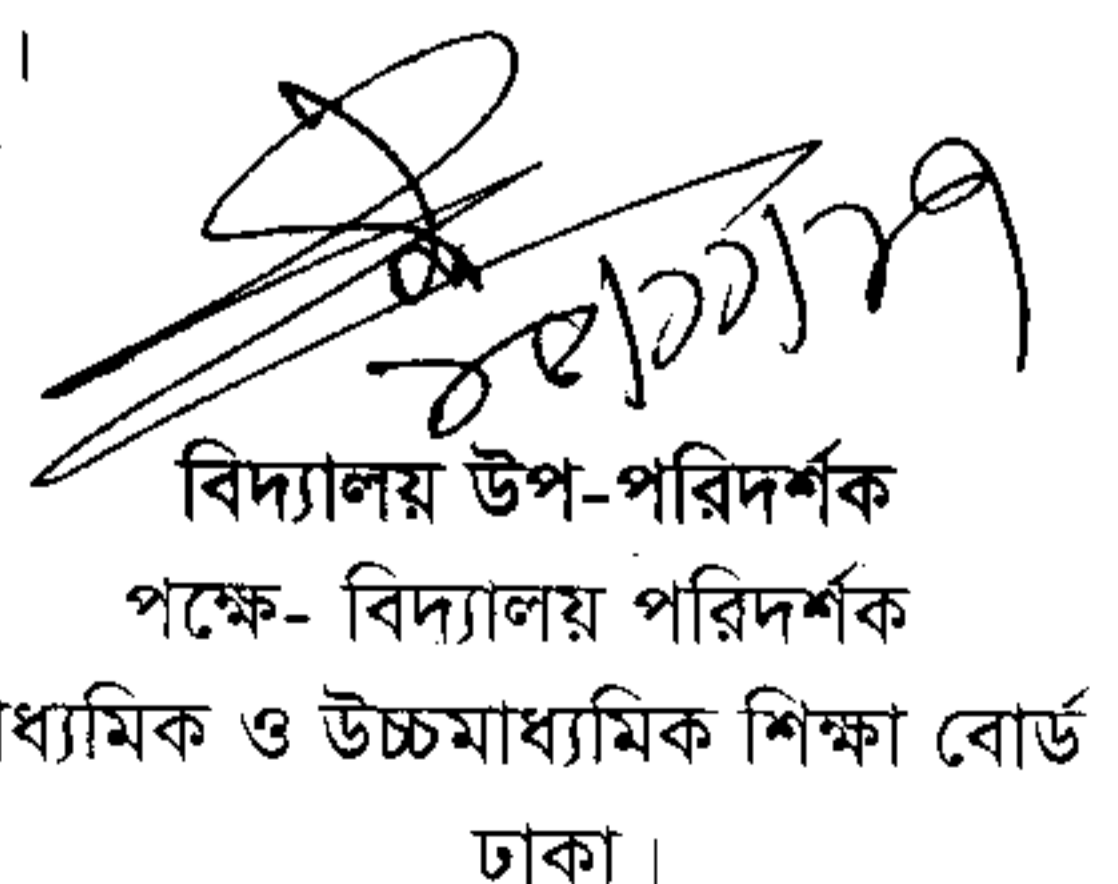 ।
বিদ্যালয় উপ-পরিদর্শক
পক্ষে- বিদ্যালয় পরিদর্শক
াধ্যমিক ও উচ্চমাধ্যমিক শিক্ষা বোর্ড
ঢাকা।